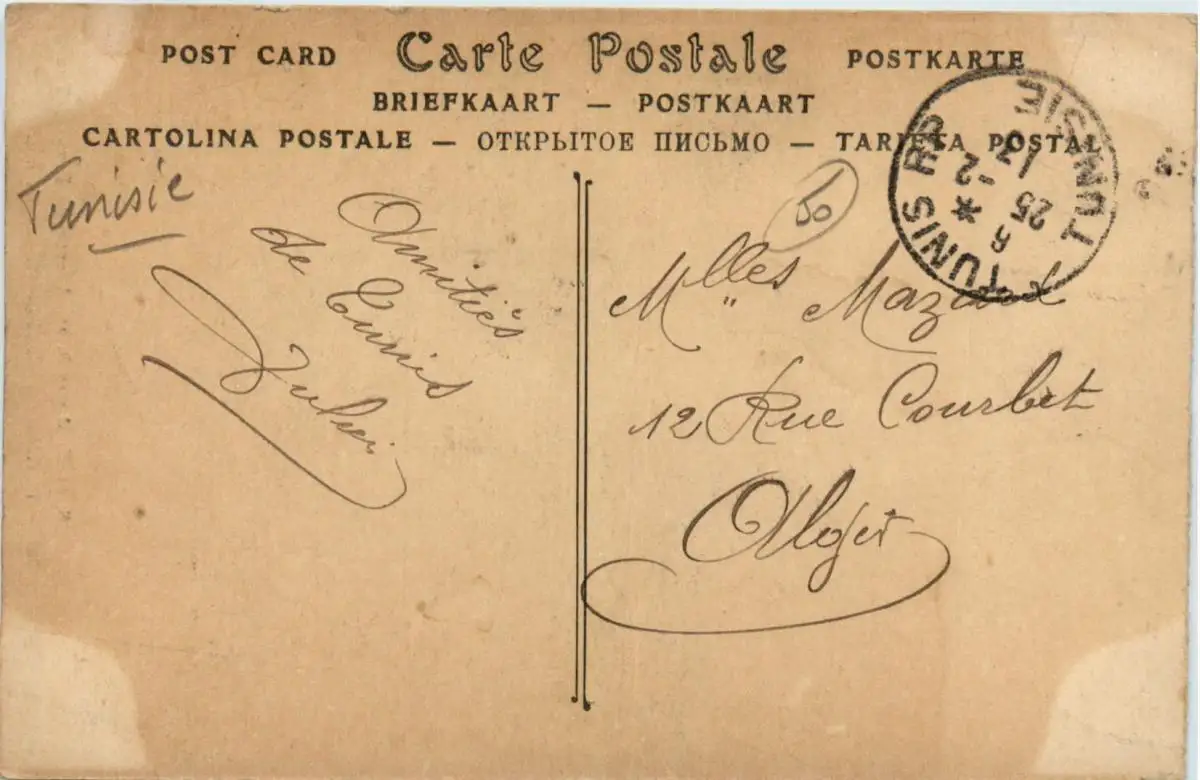 POST CARD Carte Postale POSTKARTE
BRIEFKAART — POSTKAART
CARTOLINA POSTALE — ОТКРЫТОЕ ПИСЬМО — TARJETA POSTAL
Tunisie
Amitiés
de Tunis
50
TUNIS RP
TUNISIE
25
Mlles
12 Rue Courbet
Alger